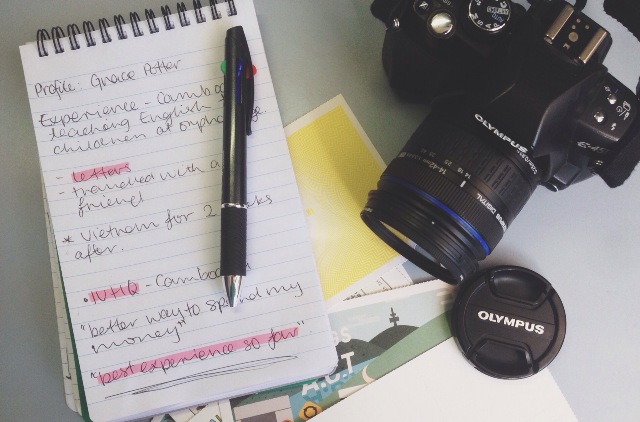 Profile: Grace Potter
Experience - Cambo
teaching English
children at orphanage.
letters
- travelled with a
friend
* Vietnam for 2 weeks
after.
• IVHQ - Cambod
"better way to spend my
money"
"best experience so far"
OLYMPUS
OLYMPUS DIGITAL
14-42mm
OLYMPUS
SS
A.C.T